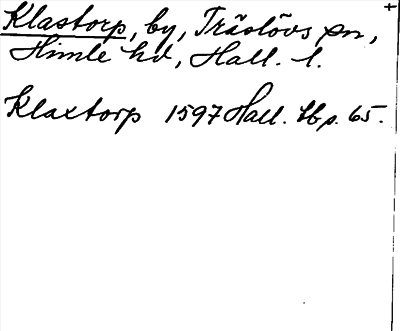 Klastorp, by, Träslövs sn,
Himle hd, Hall. l.
Klaxtorp 1597 Hall. tb s. 65.